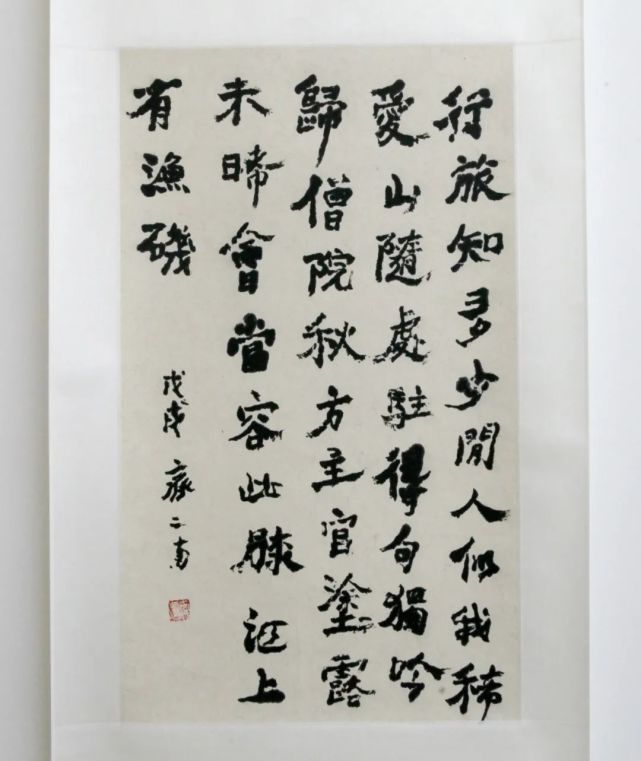 行旅知多少閒人似我稀
愛山隨處駐得句獨吟
歸僧院秋方至官塗露
未晞會當容此膝江上
有漁磯
戊戌